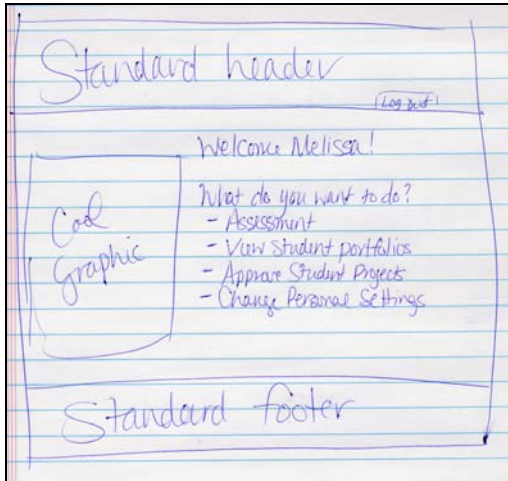 Standard header
Log out
Welcome Melissa!
What do you want to do?
- Assessment
- View Student portfolios
- Approve Student Projects
- Change Personal Settings
Cool
Graphic
Standard footer